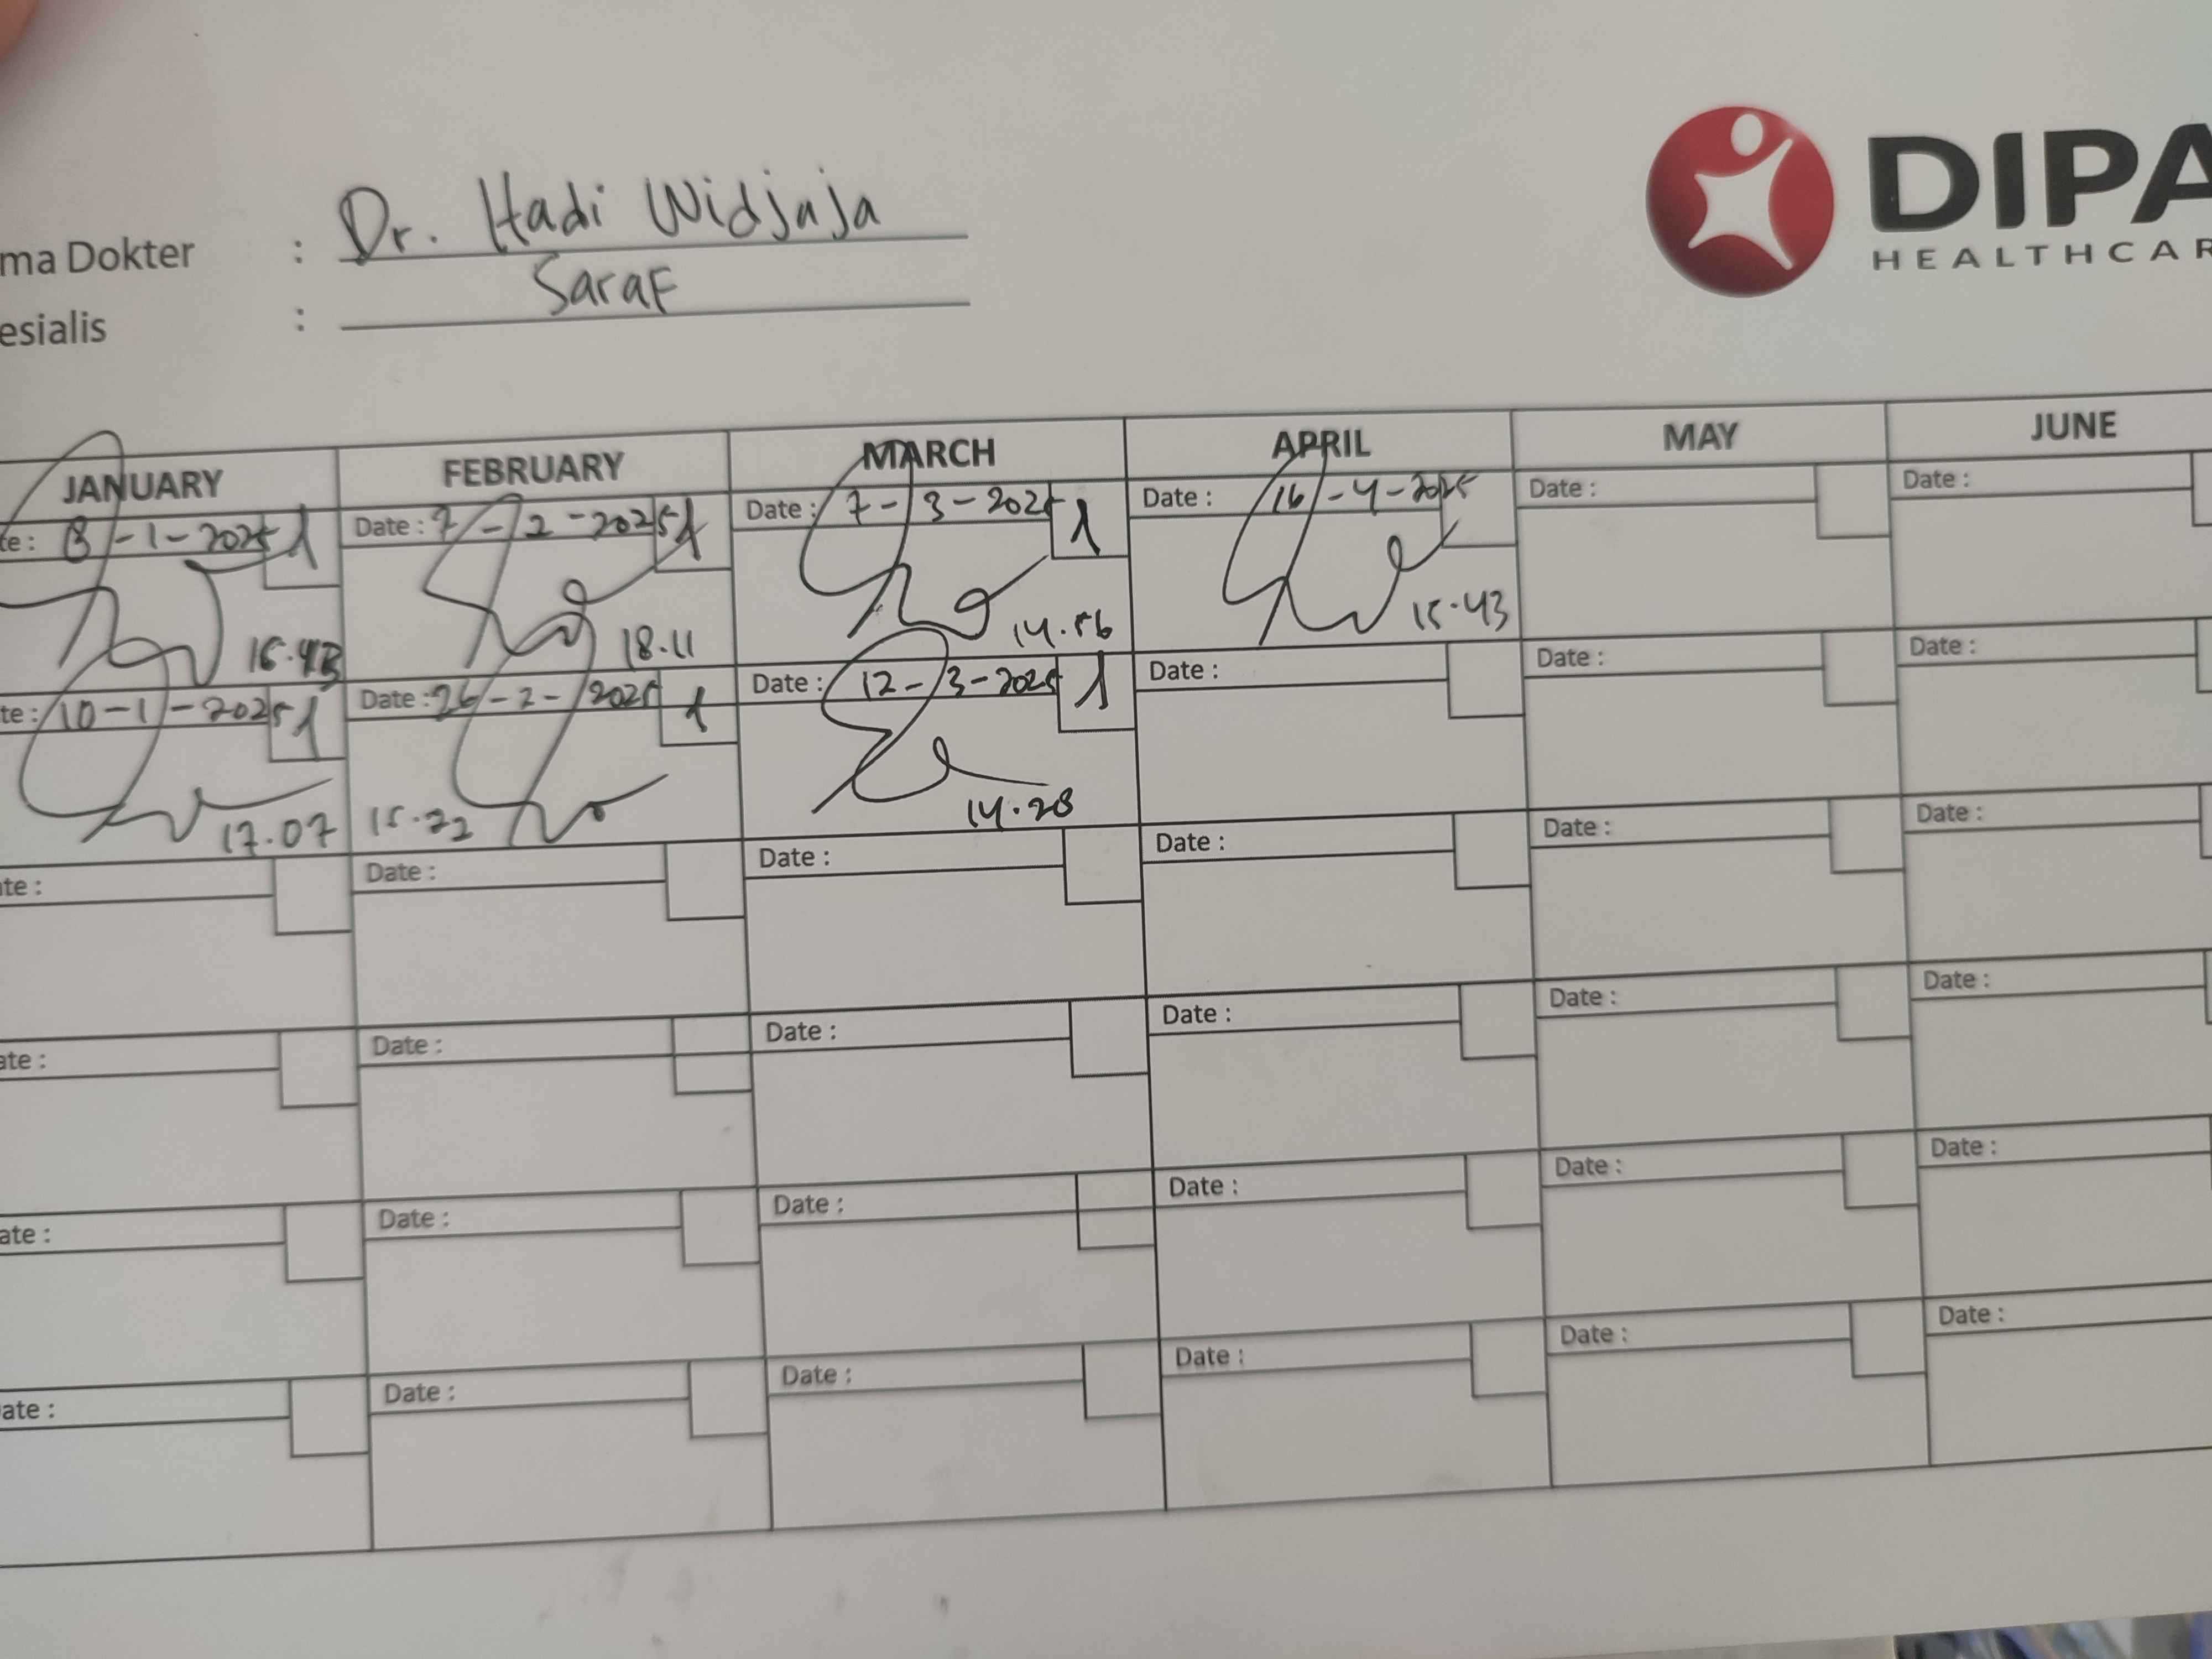 DIPA
HEALTHCAR
ma Dokter : Dr. Hadi Widjaja
esialis : Saraf
JANUARY FEBRUARY MARCH APRIL MAY JUNE
te : 8-1-2025 1 Date : 7-2-2025 1 Date : 7-3-2025 1 Date : 16-4-2025 Date : Date :
18.11 14.56 15.43
te : 10-1-2025 1 Date : 26-2-2025 1 Date : 12-3-2025 1 Date : Date : Date :
17.07 15.22 14.28
te : Date : Date : Date : Date : Date :
ate : Date : Date : Date : Date : Date :
ate : Date : Date : Date : Date : Date :
ate : Date : Date : Date : Date : Date :